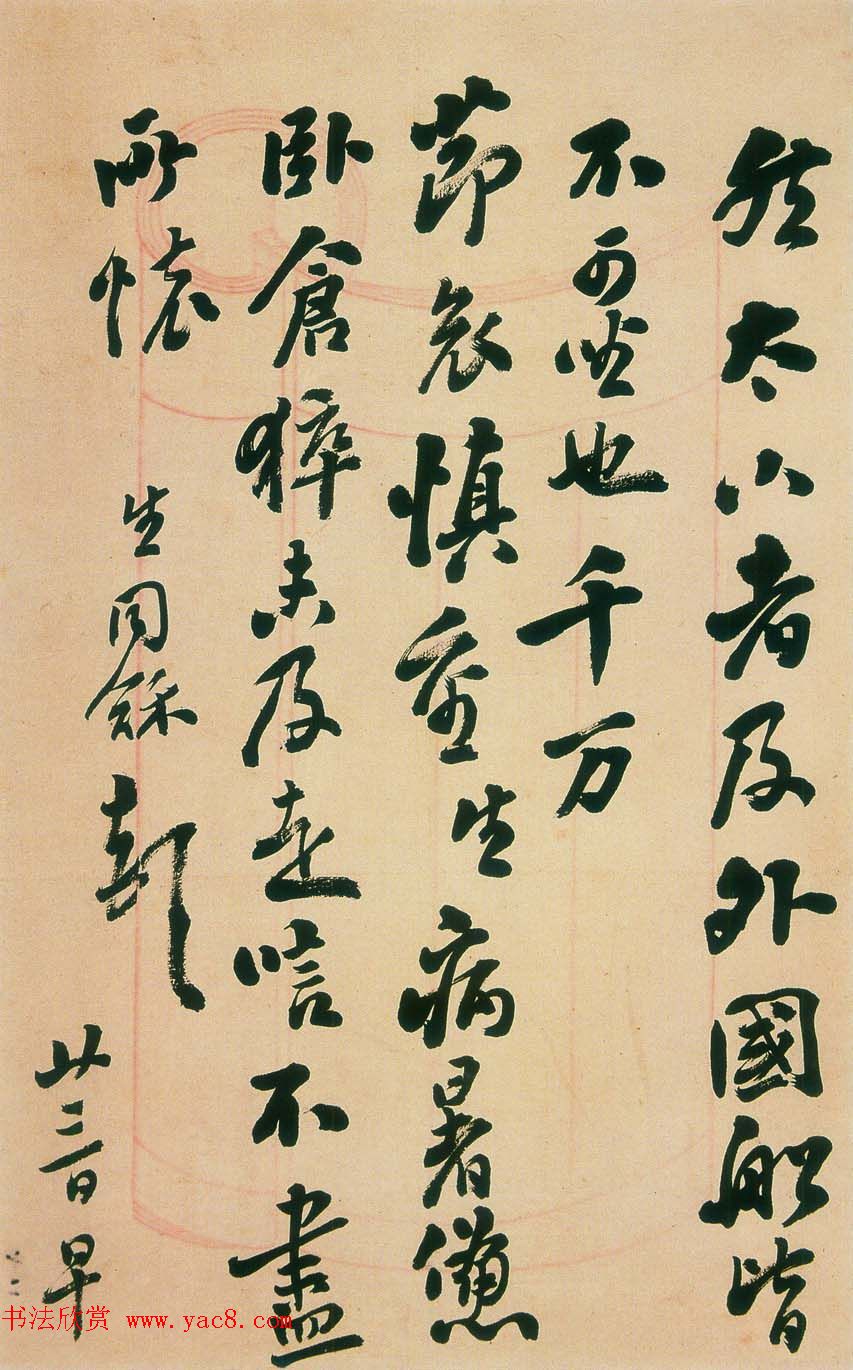 然太小者及外國船皆
不可坐也千万
節哀慎重生病暑憊
臥倉猝未及走唁不盡
所懷
生同龢頓
廿三日早
书法欣赏 www.yac8.com